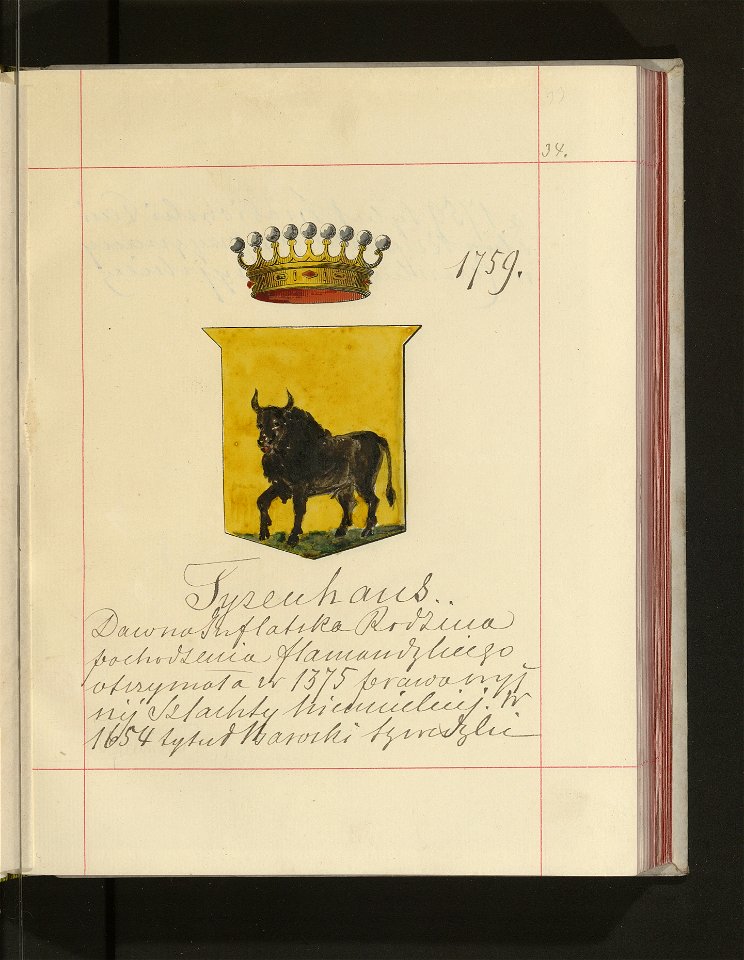 34.
1759.
Tyzenhaus..
Dawna Inflatska Rodzina
pochodzenia flamandzkiego
otrzymała w 1375 prawo wyż
niej Szlachty niemieckiej. W
1654 tytuł Baroski szwedzki